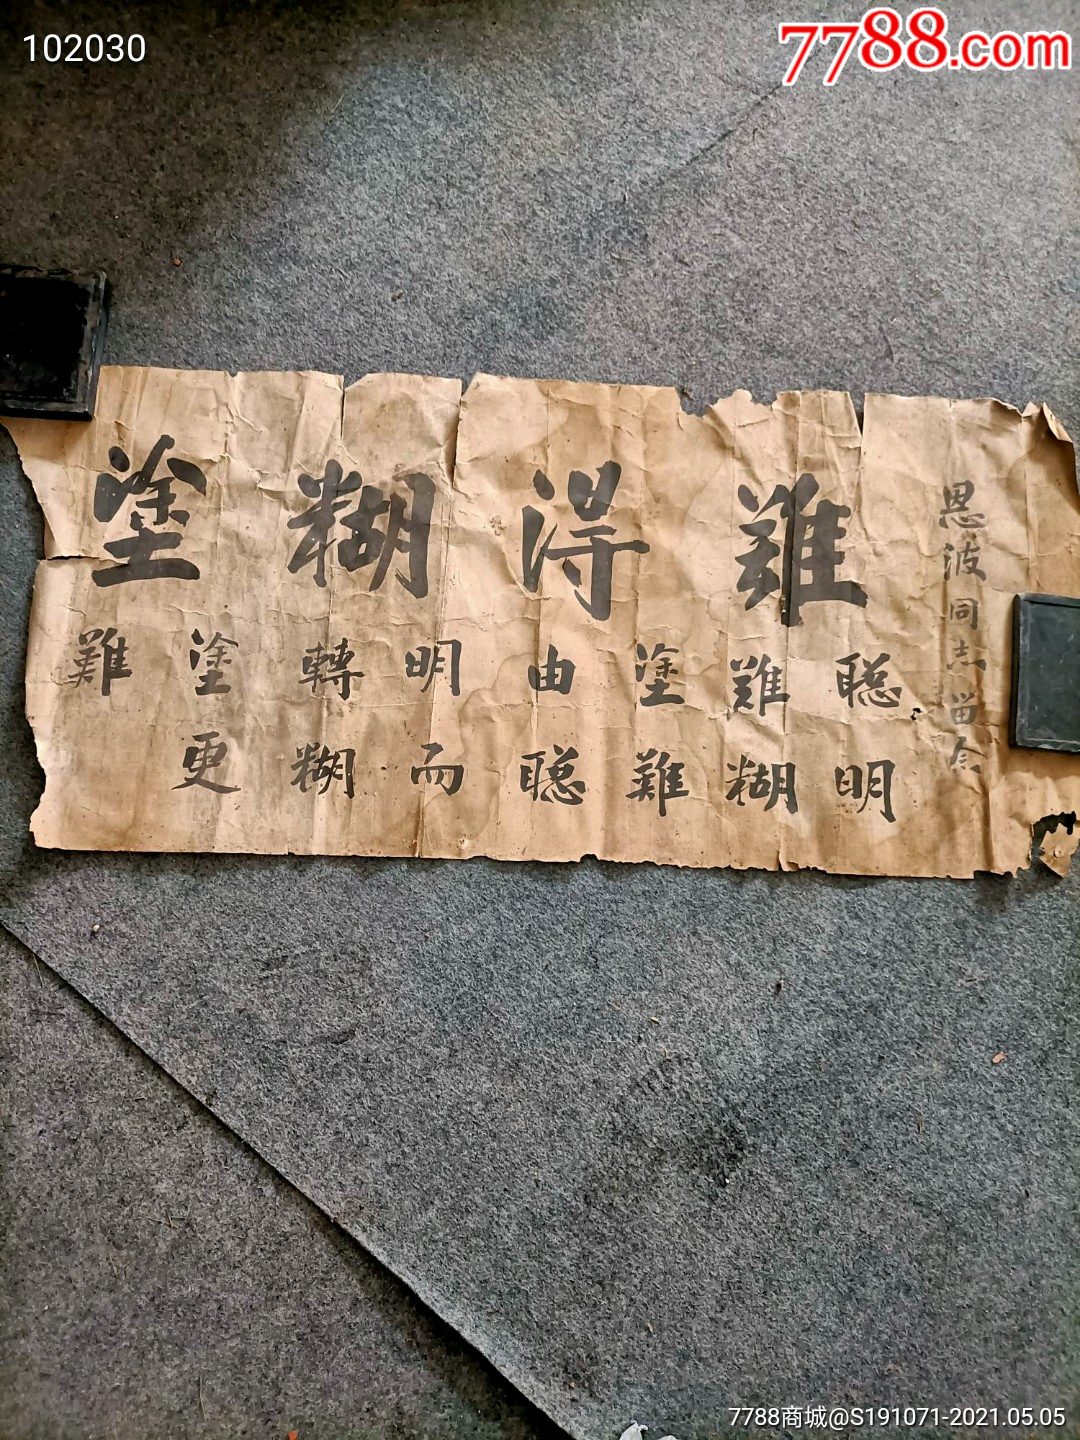 102030
7788.com
恩波同志留念
難得糊塗
聪明
難糊
塗難
由聪
明而
轉糊
塗更
難
7788商城@S191071-2021.05.05